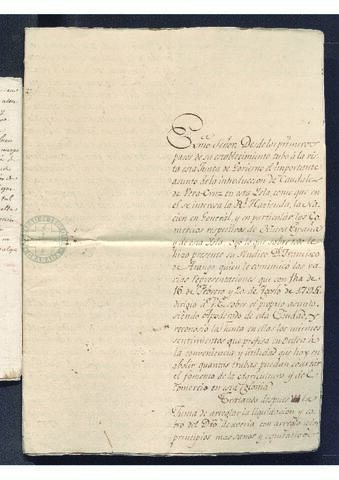 Exmo Señor. Desde los primeros
pasos de su establecimiento tubo á la vis
ta esta Junta de Govierno el importante
asunto de la introduccion de Caudales
de Vera-Cruz en esta Ysla, como que en
el se interesa la Rl. Hacienda, la Na
cion en General, y en particular los Co
mercios respectivos de Nueva España
y de esta Ysla. Oyó lo que sobre
hizo presente su Sindico Dn. Francisco
de Arango, quien le comunicó las va
rias Representaciones que con fha de
16 de Febrero y 20 de Agosto de 1794
dirigió el propio asunto,
siendo Apoderado de esta Ciudad, y
reconoció la Junta en ellas los mismos
sentimientos que profesa en orden á
la conveniencia y utilidad que hay en
abolir quantas trabas puedan coartar
el fomento de la Agricultura y del
Comercio en esta Colonia.
Tratando despues la
Junta de arreglar la liquidacion y co
bro del Dro. de averia con arreglo á los
principios mas sanos y equitativos